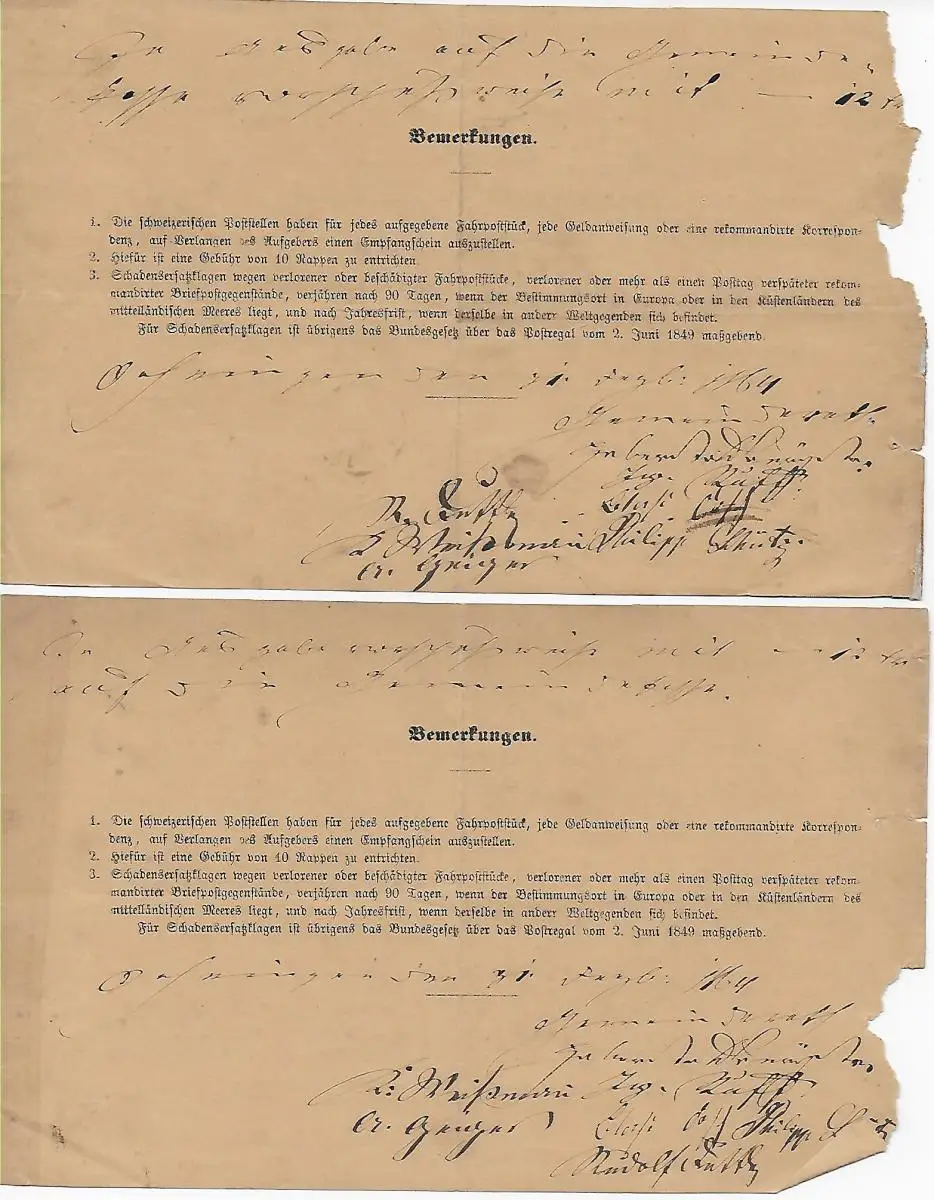 In Ausgabe auf die Gemeinde-
kasse vorschußweise mit — 12
Bemerkungen.
1. Die schweizerischen Poststellen haben für jedes aufgegebene Fahrpoststück, jede Geldanweisung oder eine rekommandirte Korrespon-
denz, auf Verlangen des Aufgebers einen Empfangschein auszustellen.
2. Hiefür ist eine Gebühr von 10 Rappen zu entrichten.
3. Schadensersatzklagen wegen verlorener oder beschädigter Fahrpoststücke, verlorener oder mehr als einen Posttag verspäteter rekom-
mandirter Briefpostgegenstände, verjähren nach 90 Tagen, wenn der Bestimmungsort in Europa oder in den Küstenländern des
mittelländischen Meeres liegt, und nach Jahresfrist, wenn derselbe in andern Weltgegenden sich befindet.
Für Schadensersatzklagen ist übrigens das Bundesgesetz über das Postregal vom 2. Juni 1849 maßgebend.
den 31. Dezb. 1864
Gemeinderath
Ruff
R.
Weißman Philipp Schütz
A. Geiger
In Ausgabe vorschußweise mit — 12
auf die Gemeindekasse.
Bemerkungen.
1. Die schweizerischen Poststellen haben für jedes aufgegebene Fahrpoststück, jede Geldanweisung oder eine rekommandirte Korrespon-
denz, auf Verlangen des Aufgebers einen Empfangschein auszustellen.
2. Hiefür ist eine Gebühr von 10 Rappen zu entrichten.
3. Schadensersatzklagen wegen verlorener oder beschädigter Fahrpoststücke, verlorener oder mehr als einen Posttag verspäteter rekom-
mandirter Briefpostgegenstände, verjähren nach 90 Tagen, wenn der Bestimmungsort in Europa oder in den Küstenländern des
mittelländischen Meeres liegt, und nach Jahresfrist, wenn derselbe in andern Weltgegenden sich befindet.
Für Schadensersatzklagen ist übrigens das Bundesgesetz über das Postregal vom 2. Juni 1849 maßgebend.
den 31. Dezb. 1864
Gemeinderath
Weißman Ruff
A. Geiger Philipp
Rudolf